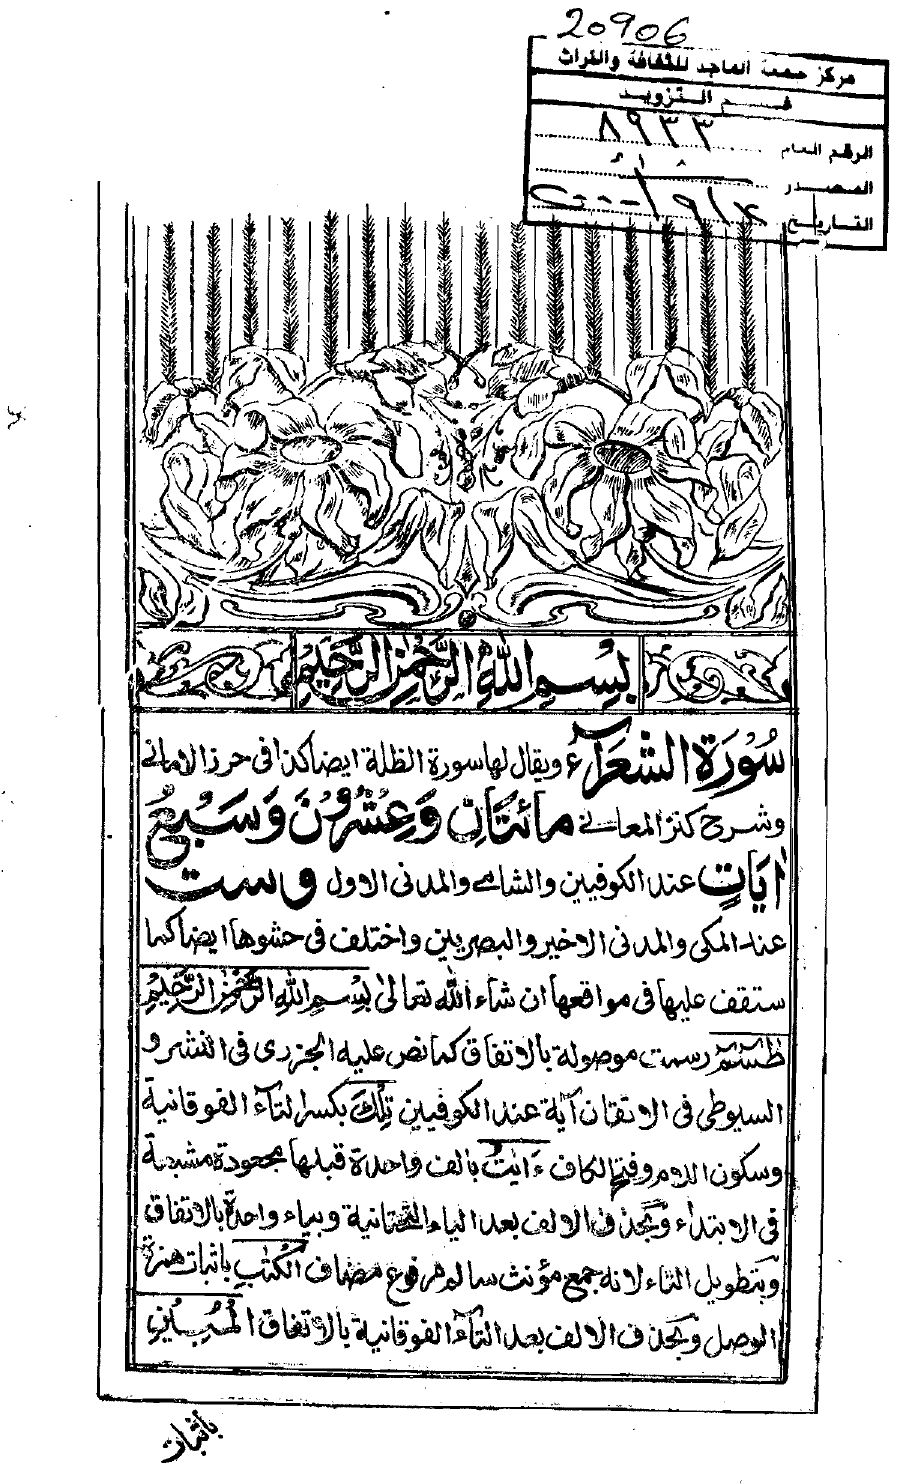 20906
مركز جمعة الماجد للثقافة والتراث
قسم التزويد
الرقم العام ٨٩٣٣
المصدر
التاريخ
بِسْمِ اللهِ الرَّحْمٰنِ الرَّحِيْمِ
سُوْرَةُ الشُّعَرَآءِ ويقال لها سورة الظلة ايضا كذا فى حرز الامانى
وشرح كنز المعانى مائَتَانِ وَعِشْرُوْنَ وَسَبْعُ
اٰيَاتٍ عند الكوفيين والشامى والمدنى الاول وست
عند المكى والمدنى الاخير والبصريين واختلف فى حشوها ايضا كما
ستقف عليها فى مواقعها ان شاء الله تعالى بِسْمِ اللهِ الرَّحْمٰنِ الرَّحِيْمِ
طٰسٓمّٓ رسمت موصولة بالاتفاق كما نص عليه الجزرى فى النشر و
السيوطى فى الاتقان آية عند الكوفيين تِلْكَ بكسر التآء الفوقانية
وسكون اللام وفتح الكاف ءَايٰتُ بالف واحدة قبلها مجعودة مشبعة
فى الابتداء وبحذف الالف بعد الياء التحتانية وبياء واحدة بالاتفاق
وبتطويل التاء لانه جمع مؤنث سالم مرفوع مضاف الْكِتٰبِ باثبات همزة
الوصل وبحذف الالف بعد التآء الفوقانية بالاتفاق الْمُبِيْنِ
باثبات